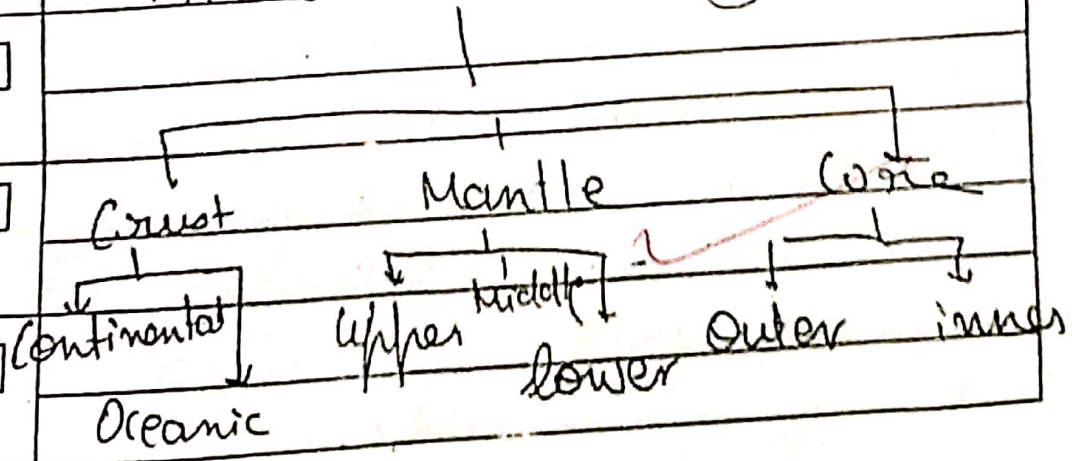 Crust Mantle Core
Continental Upper Middle lower Outer inner
Oceanic